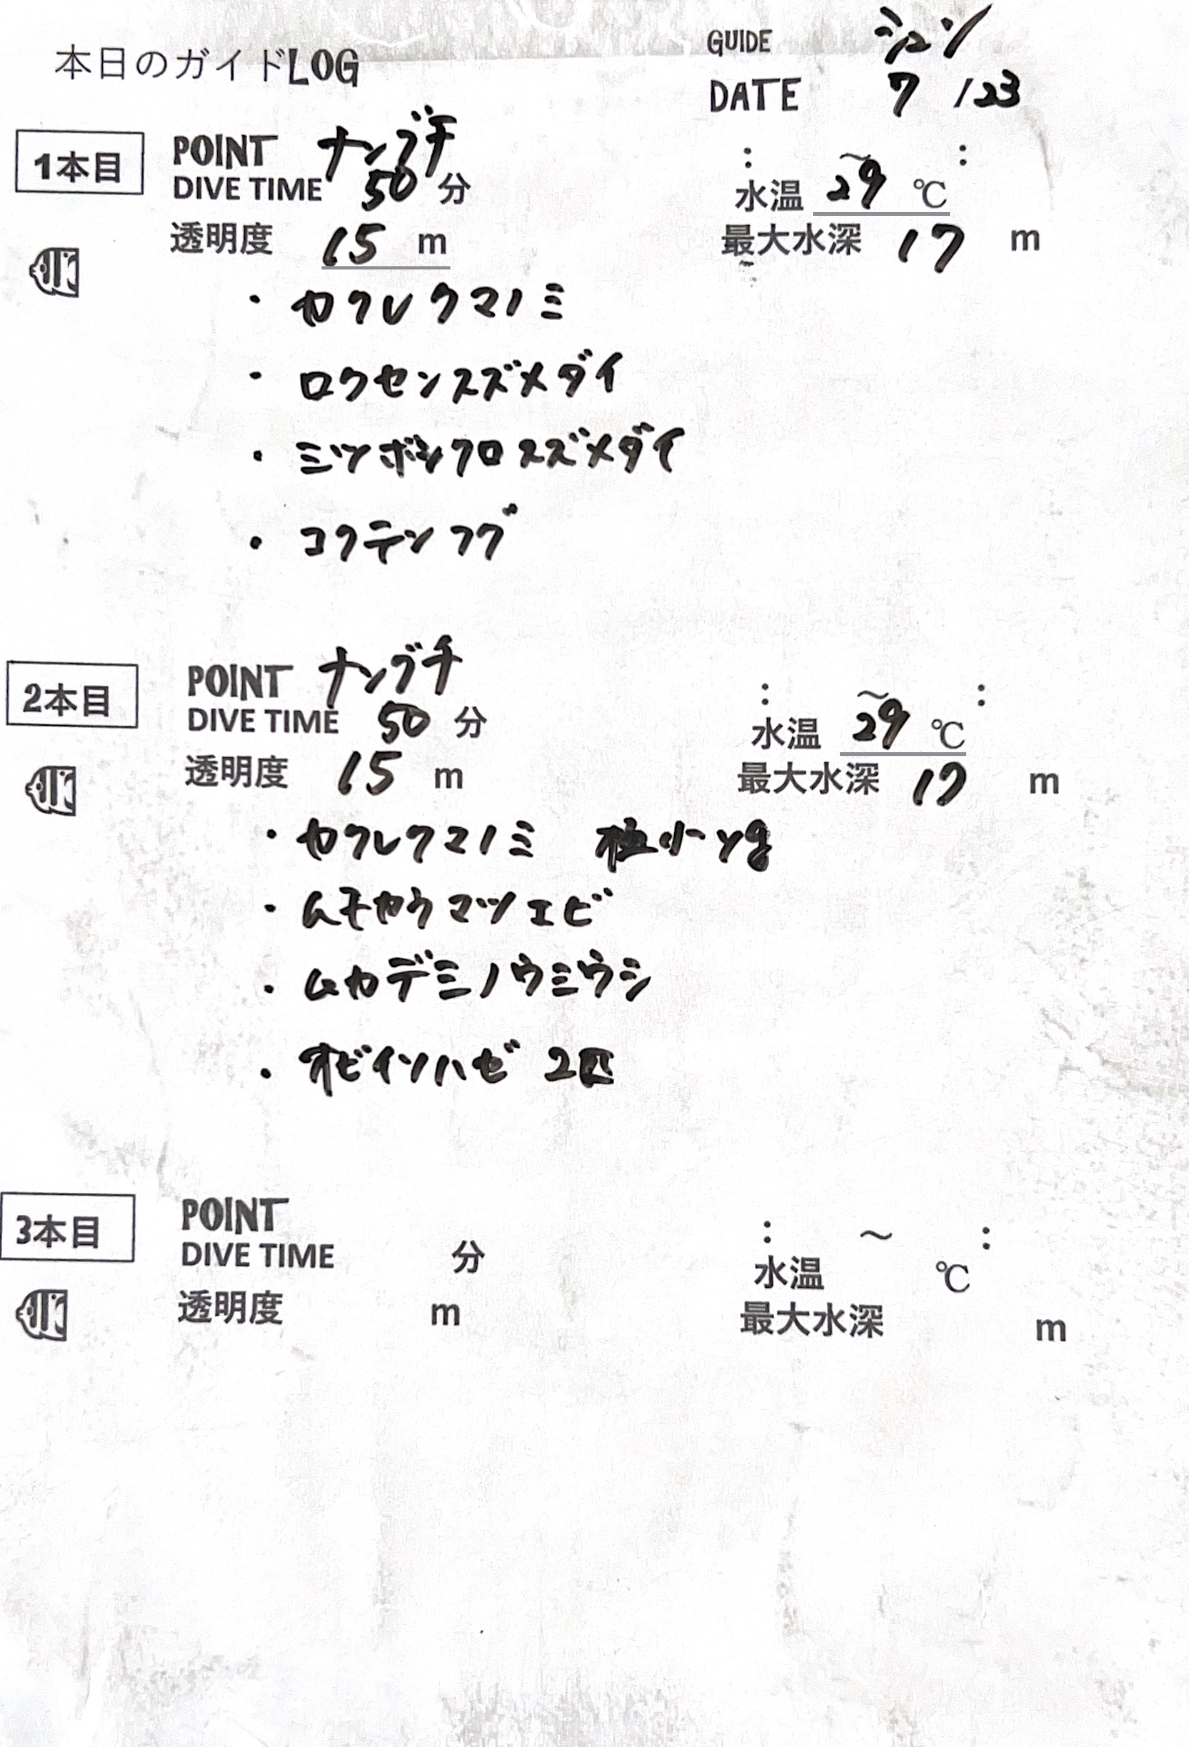 本日のガイドLOG
GUIDE シュン
DATE 7 /23
1本目 POINT ナングチ : ~ :
DIVE TIME 50 分 水温 29 ℃
透明度 15 m 最大水深 17 m
・カクレクマノミ
・ロクセンスズメダイ
・ミツボシクロスズメダイ
・コクテンフグ
2本目 POINT ナングチ : ~ :
DIVE TIME 50 分 水温 29 ℃
透明度 15 m 最大水深 17 m
・カクレクマノミ 極小yg
・ムチカラマツエビ
・ムカデミノウミウシ
・オビイソハゼ 2匹
3本目 POINT : ~ :
DIVE TIME 分 水温 ℃
透明度 m 最大水深 m